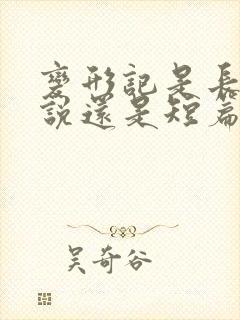 變形記是長
說還是短篇
吳奇谷